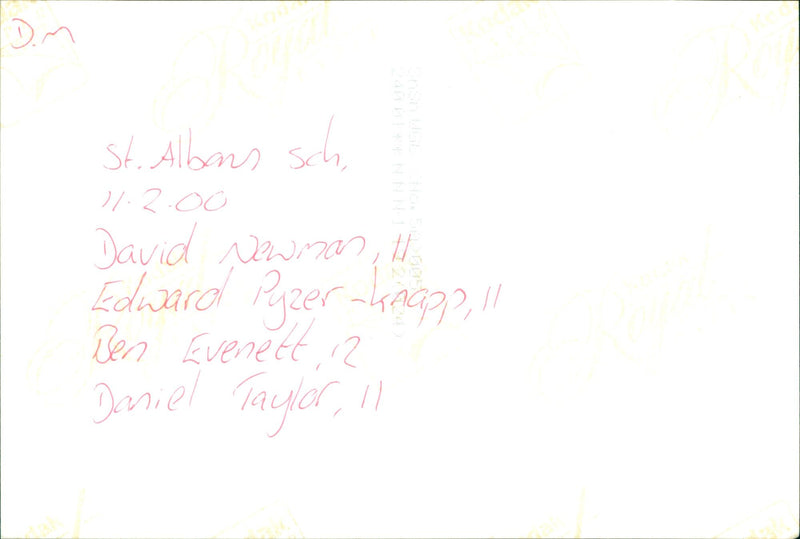 D.M
St. Albans Sch.
11.2.00
David Newman, 11
Edward Pyzer-Knapp, 11
Ben Evenett, 12
Daniel Taylor, 11
Kodak
Royal